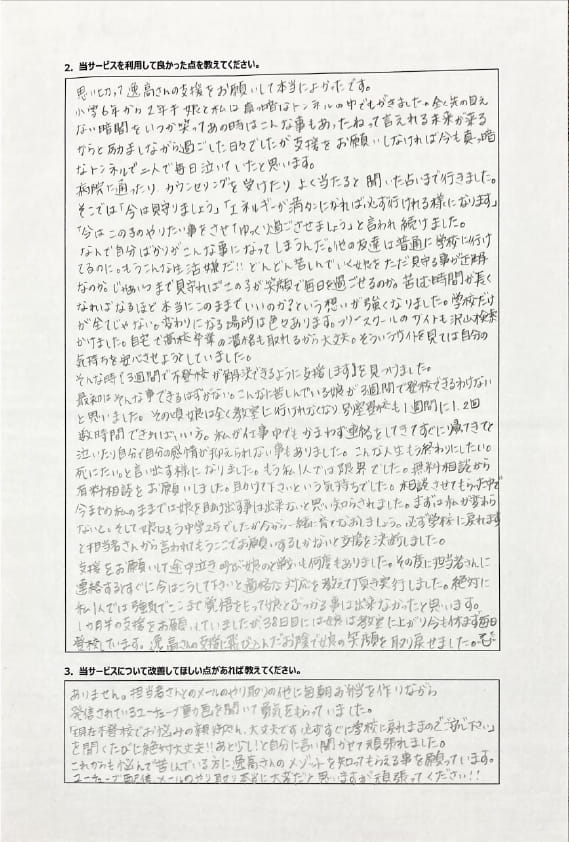 2. 当サービスを利用して良かった点を教えてください。
思い切って逸高さんの支援をお願いして本当によかったです。
小学6年から2年半娘と私は真っ暗なトンネルの中でもがきました。全く先の見え
ない暗闇をいつか笑ってあの時はこんな事もあったねって言えれる未来が来る
からと励ましながら過ごした日々でしたが支援をお願いしなければ今も真っ暗
なトンネルで二人で毎日泣いていたと思います。
病院に通ったり カウンセリングを受けたり よく当たると聞いた占いまで行きました。
そこでは「今は見守りましょう」「エネルギーが満タンになれば必ず行けれる様になります」
「今はこの子のやりたい事をさせてゆっくり過ごさせましょう」と言われ続けました。
なんで自分ばかりがこんな事になってしまうんだ。他の友達は普通に学校に行け
てるのに。もうこんな生活嫌だ!! どんどん苦しんでいく娘をただ見守る事が正解
なのか。じゃあいつまで見守ればこの子が笑顔で毎日を過ごせるのか。苦しむ時間が長く
なればなるほど本当にこのままでいいのか?という想いが強くなりました。学校だけ
が全てじゃない。変わりになる場所は色々あります。フリースクールのサイトも沢山検索
かけました。自宅で高校卒業の資格も取れるから大丈夫。そういうサイトを見ては自分の
気持ちを安心させようとしていました。
そんな時『3週間で不登校が解決できるように支援します』を見つけました。
最初はそんな事できるはずがない。こんなに苦しんでいる娘が3週間で登校できるわけない
と思いました。その頃娘は全く教室に行けれなくなり別室登校も1週間に1.2回
数時間できればいい方。私が仕事中でもかまわず連絡をしてきてすぐに帰ってきてと
泣いたり自分で自分の感情が抑えられない事もありました。こんな人生もう終わりにしたい。
死にたい。と言い出す様になりました。もう私1人では限界でした。無料相談から
有料相談をお願いしました。助けて下さいという気持ちでした。相談させてもらう中で
今までの私のままでは娘を助け出す事は出来ないと思い知らされました。まずは私が変わら
ないと。そして娘はもう中学2年でしたが今から一緒に育てなおしましょう。必ず学校に戻れます
と担当者さんから言われてもうここでお願いするしかないと支援を決断しました。
支援をお願いして途中泣き叫ぶ娘との戦いも何度もありました。その度に担当者さんに
連絡するとすぐに今はこうして下さいと適格な対応を教えて頂き実行しました。絶対に
私1人では強気でここまで覚悟をもって娘とぶつかる事は出来なかったと思います。
1か月半の支援をお願いしていましたが38日目には娘は教室に上がり今も休まず毎日
登校しています。逸高さんの支援に飛び込んだお陰で娘の笑顔を取り戻せました。
3. 当サービスについて改善してほしい点があれば教えてください。
ありません。担当者さんとのメールのやり取りの他に毎朝お弁当を作りながら
発信されているユーチューブ動画を聞いて勇気をもらっていました。
「現在不登校でお悩みの親御さん、大丈夫です必ずすぐに学校に戻れますのでご安心下さい」
を聞くたびに絶対大丈夫!!あと少し!と自分に言い聞かせて頑張れました。
これからも悩んで苦しんでいる方に逸高さんのメソッドを知ってもらえる事を願っています。
ユーチューブ配信、メールのやり取り本当に大変だと思いますが頑張ってください!!